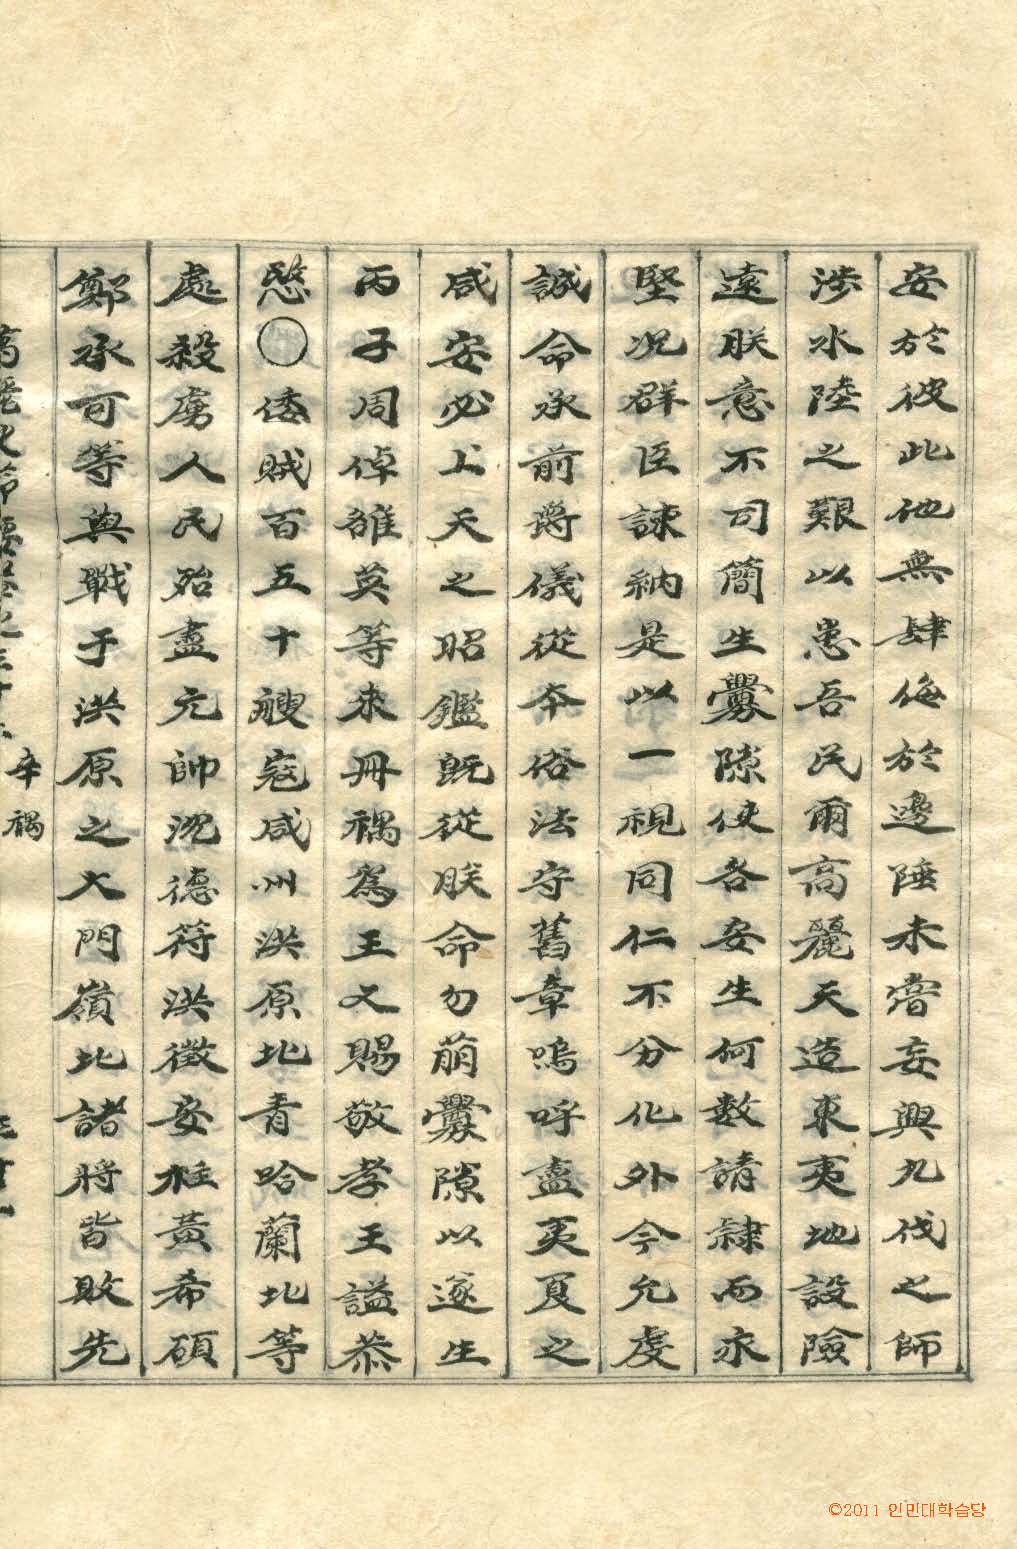 安於彼此他無肆侮於邊陲未甞妄興九伐之師
涉水陸之艱以患吾民爾高麗天造東夷地設險
遠朕意不司簡生釁隙使各安生何數請隷而永
堅况群臣諫納是以一視同仁不分化外今允虔
誠命承前爵儀從本俗法守舊章嗚呼盡夷夏之
咸安必上天之昭鑑旣從朕命勿萌釁隙以遂生
丙子周倬雒英等来冊禑爲王又賜敬孝王謚恭
愍〇倭賊百五十艘寇咸州洪原北青哈蘭北等
處殺虜人民殆盡元帥沈德符洪徵安柱黃希碩
鄭承可等與戰于洪原之大門嶺北諸將皆敗先
高麗史節要卷之三十二 辛禑
©2011 인민대학습당